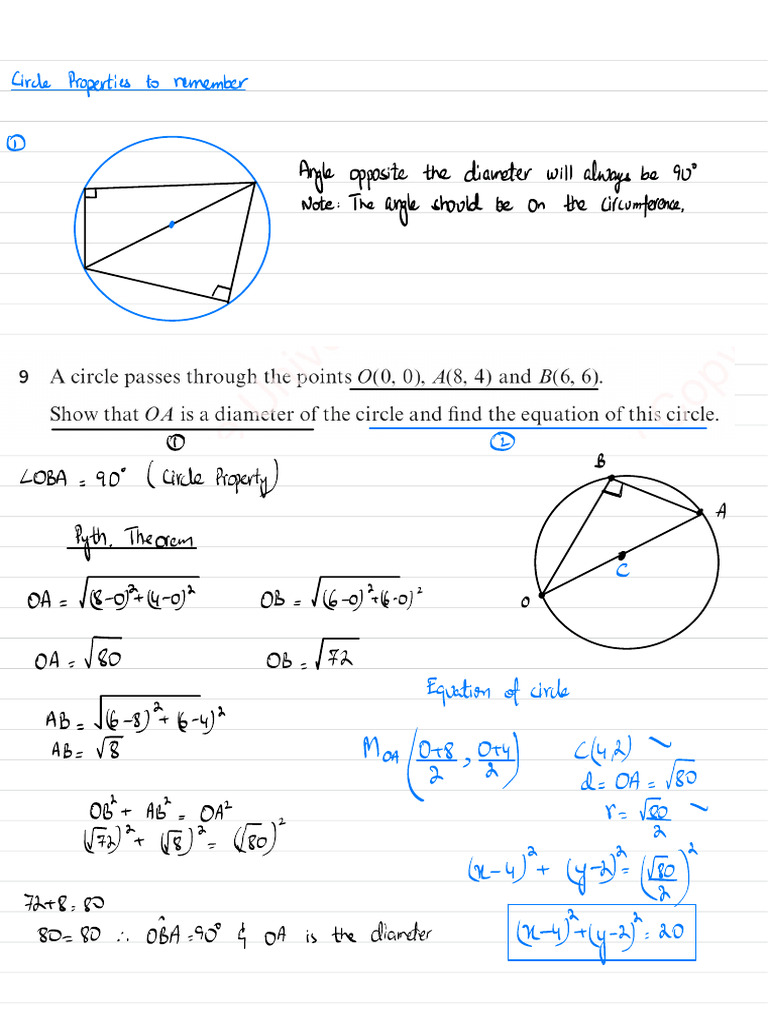 Circle Properties to remember
①
Angle opposite the diameter will always be 90°
Note: The angle should be on the circumference.
9 A circle passes through the points O(0, 0), A(8, 4) and B(6, 6).
Show that OA is a diameter of the circle and find the equation of this circle.
① ②
∠OBA = 90° (Circle Property)
B
A
C
O
Pyth. Theorem
OA = √((8-0)²+(4-0)²) OB = √((6-0)²+(6-0)²)
OA = √80 OB = √72
AB = √((6-8)²+(6-4)²)
AB = √8
OB² + AB² = OA²
(√72)² + (√8)² = (√80)²
72+8 = 80
80 = 80 ∴ OB̂A = 90° & OA is the diameter
Equation of circle
M_OA ((0+8)/2 , (0+4)/2) C(4,2)
d = OA = √80
r = √80/2
(x-4)² + (y-2)² = (√80/2)²
(x-4)²+(y-2)² = 20